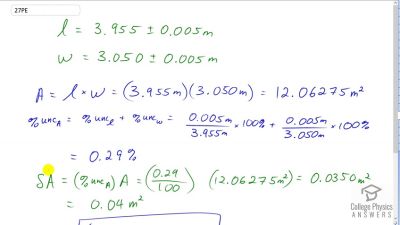 27PE
l = 3.955 ± 0.005m
w = 3.050 ± 0.005m
A = l × w = (3.955m)(3.050m) = 12.06275m²
% unc_A = % unc_l + % unc_w = 0.005m/3.955m × 100% + 0.005m/3.050m × 100%
= 0.29%
δA = (% unc_A) A = (0.29/100) (12.06275m²) = 0.0350m²
= 0.04m²
College Physics
ANSWERS